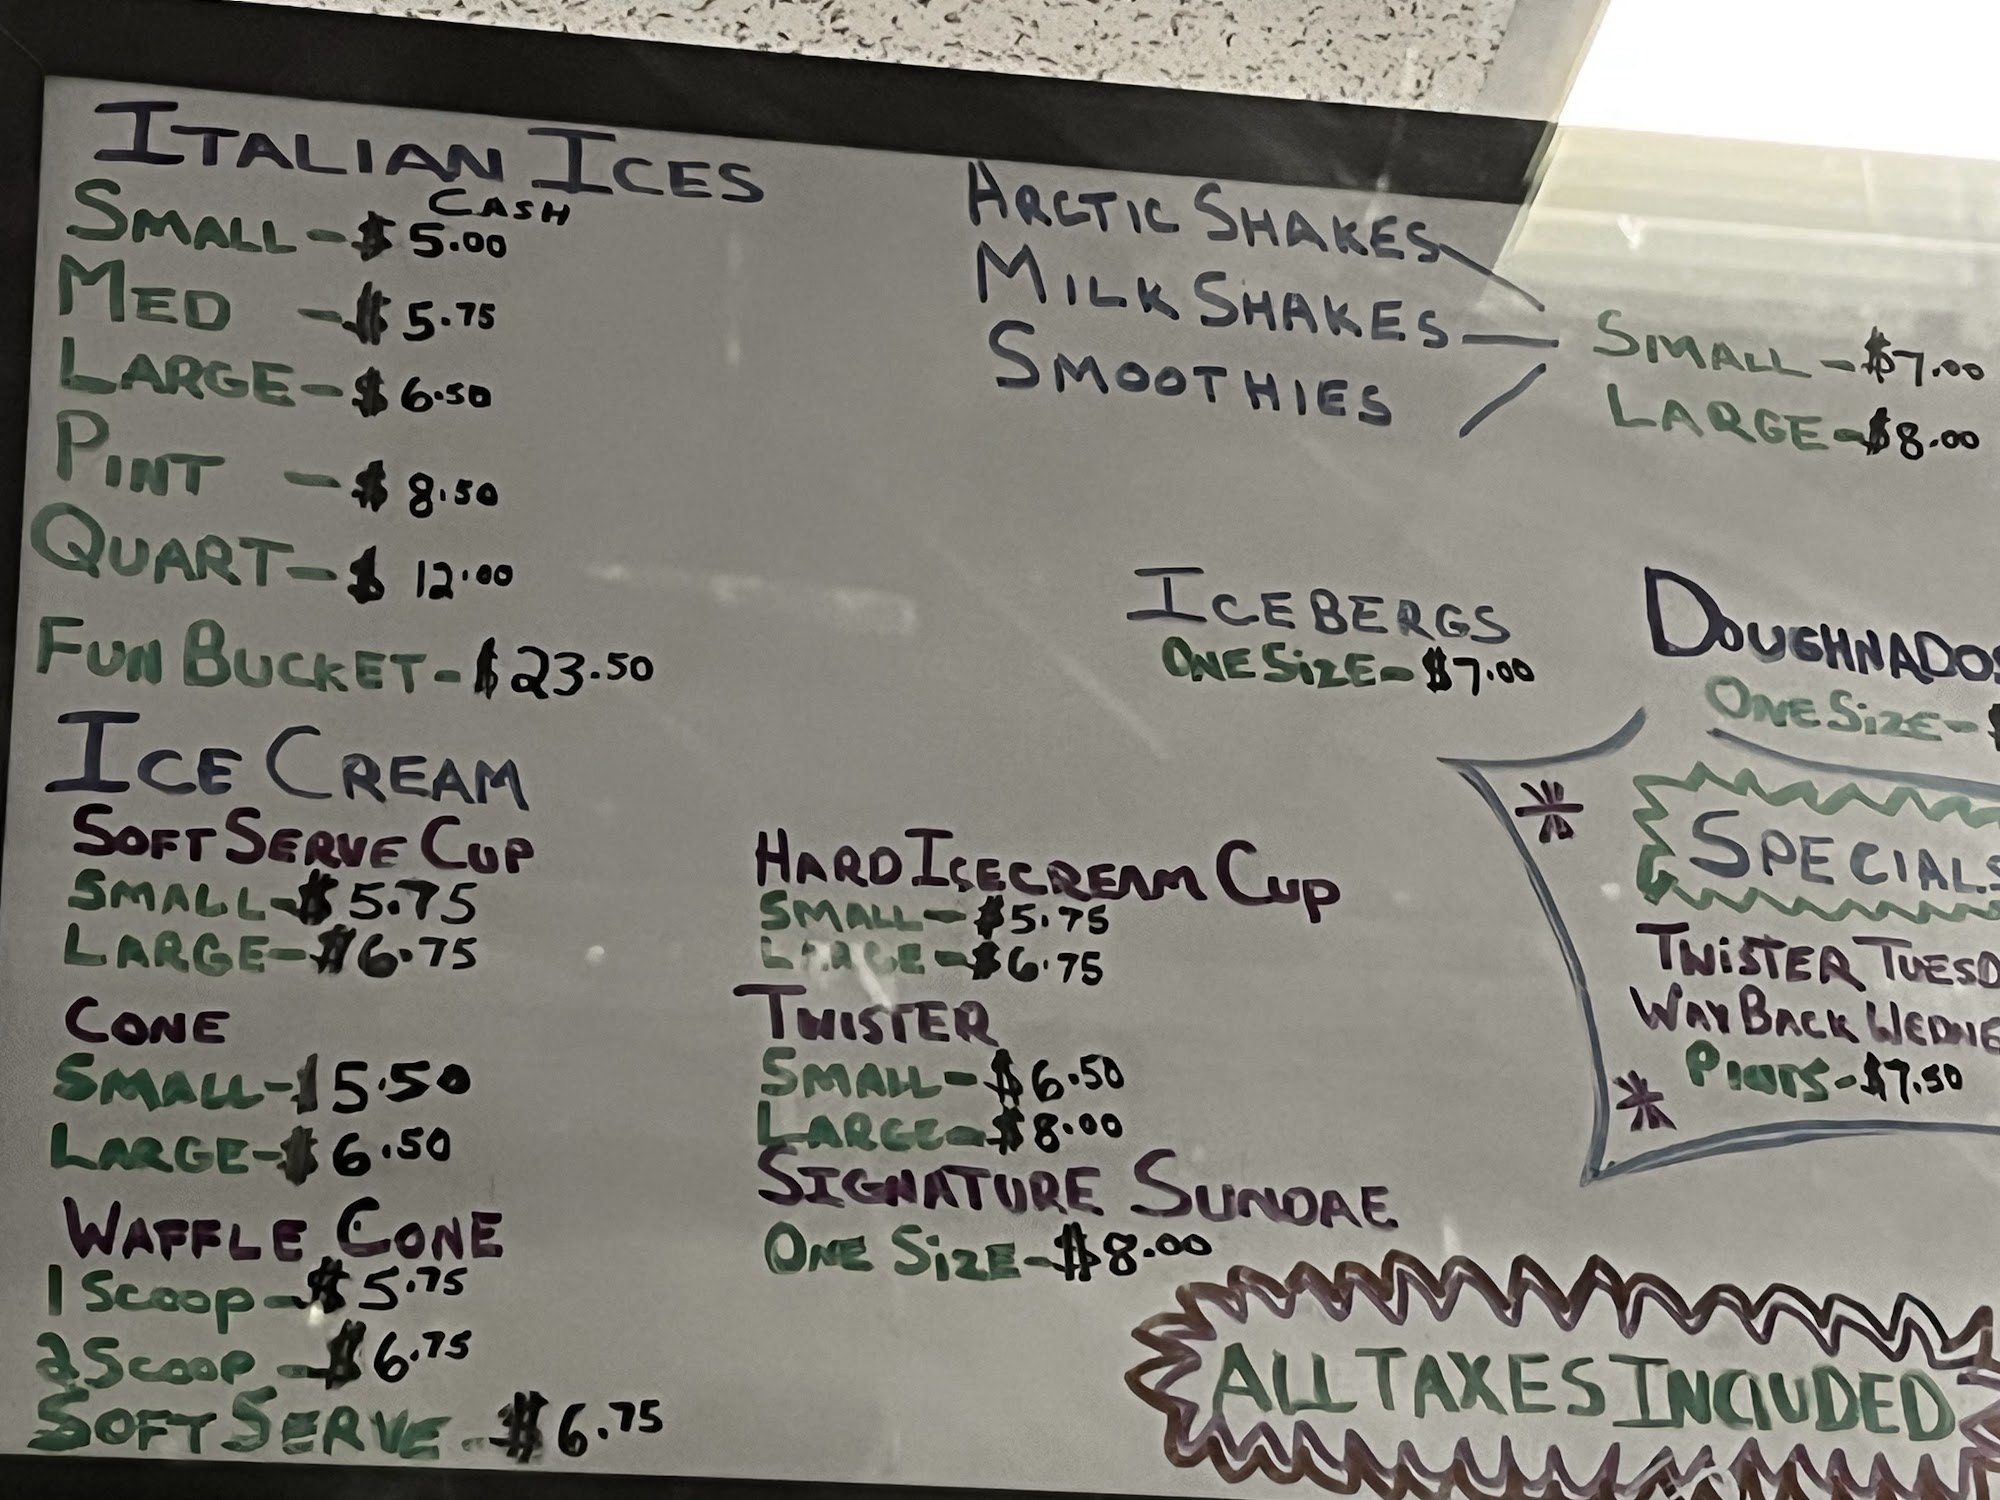 ITALIAN ICES
CASH
SMALL - $5.00
MED - $5.75
LARGE - $6.50
PINT - $8.50
QUART - $12.00
FUN BUCKET - $23.50
ICE CREAM
SOFT SERVE CUP
SMALL - $5.75
LARGE - $6.75
CONE
SMALL - $5.50
LARGE - $6.50
WAFFLE CONE
1 SCOOP - $5.75
2 SCOOP - $6.75
SOFT SERVE - $6.75
ARCTIC SHAKES
MILK SHAKES
SMOOTHIES
SMALL - $7.00
LARGE - $8.00
ICEBERGS
ONE SIZE - $7.00
DOUGHNADOS
ONE SIZE - $
HARD ICECREAM CUP
SMALL - $5.75
LARGE - $6.75
TWISTER
SMALL - $6.50
LARGE - $8.00
SIGNATURE SUNDAE
ONE SIZE - $8.00
SPECIALS
TWISTER TUESD
WAY BACK WEDNE
PINTS - $7.50
ALL TAXES INCLUDED